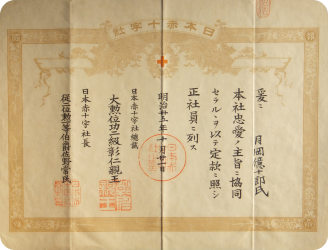 日本赤十字社
月岡隱十郎氏
茲ニ
本社忠愛ノ主旨ニ協同
セラルヽヲ以テ定款ニ照シ
正社員ニ列ス
明治廿五年十月廿一日
日本赤十字社總裁
大勲位功二級彰仁親王
日本赤十字社長
從二位勲一等伯爵佐野常民